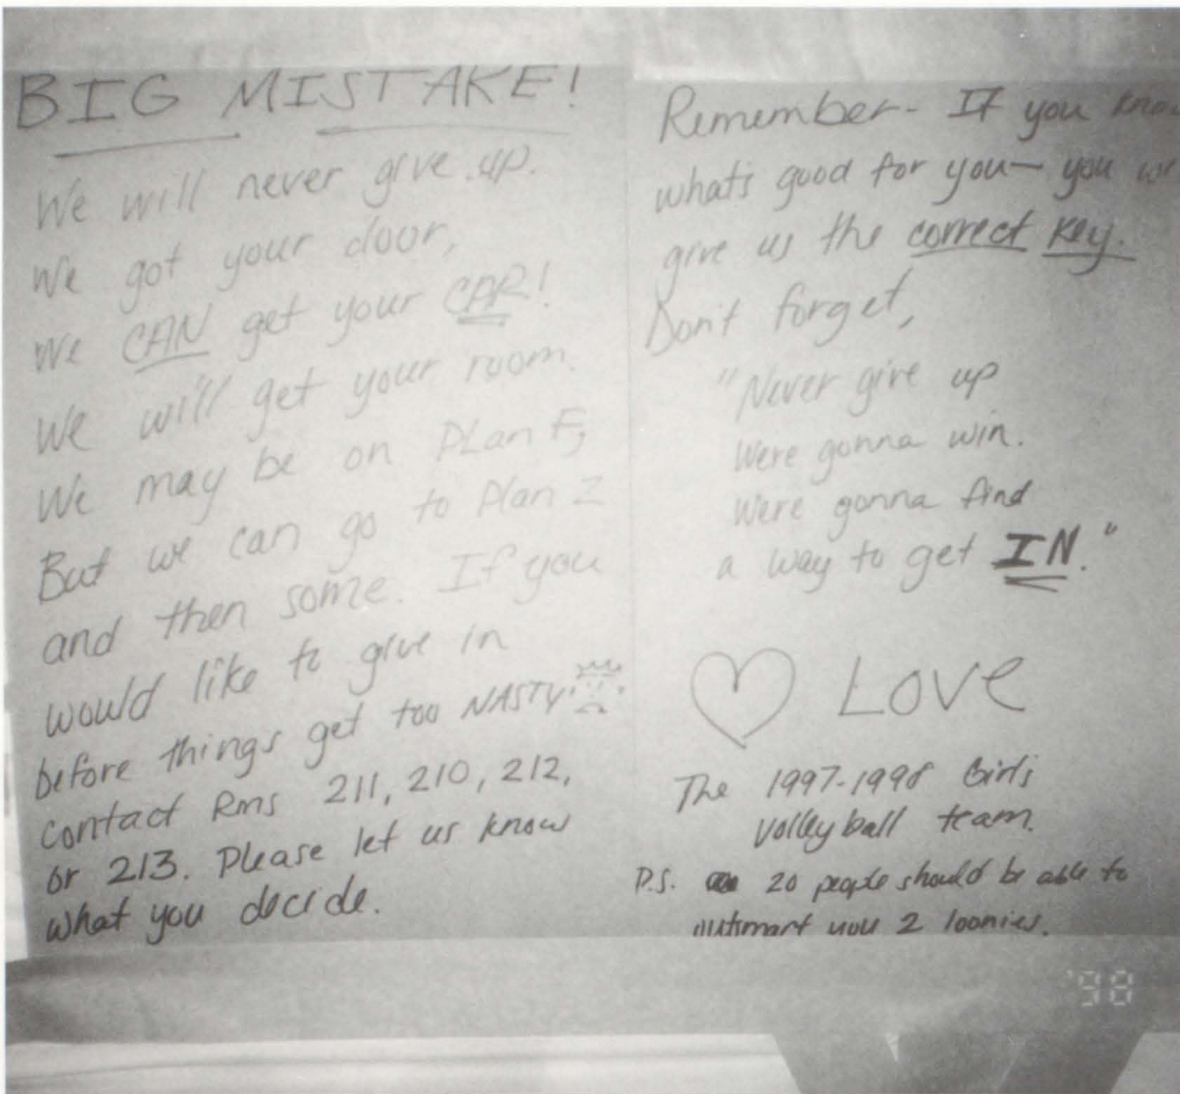 BIG MISTAKE!
We will never give up.
We got your door,
We CAN get your CAR!
We will get your room.
We may be on PLan F,
But we can go to Plan Z
and then some. If you
would like to give in
before things get too NASTY
contact Rms 211, 210, 212,
or 213. Please let us know
what you decide.
Remember- If you
whats good for you- you
give us the correct key.
Don't forget,
"Never give up
Were gonna win.
Were gonna find
a way to get IN."
Love
The 1997-1998 Girls
volleyball team.
P.S. 20 people should be able to
outsmart you 2 loonies.
'98